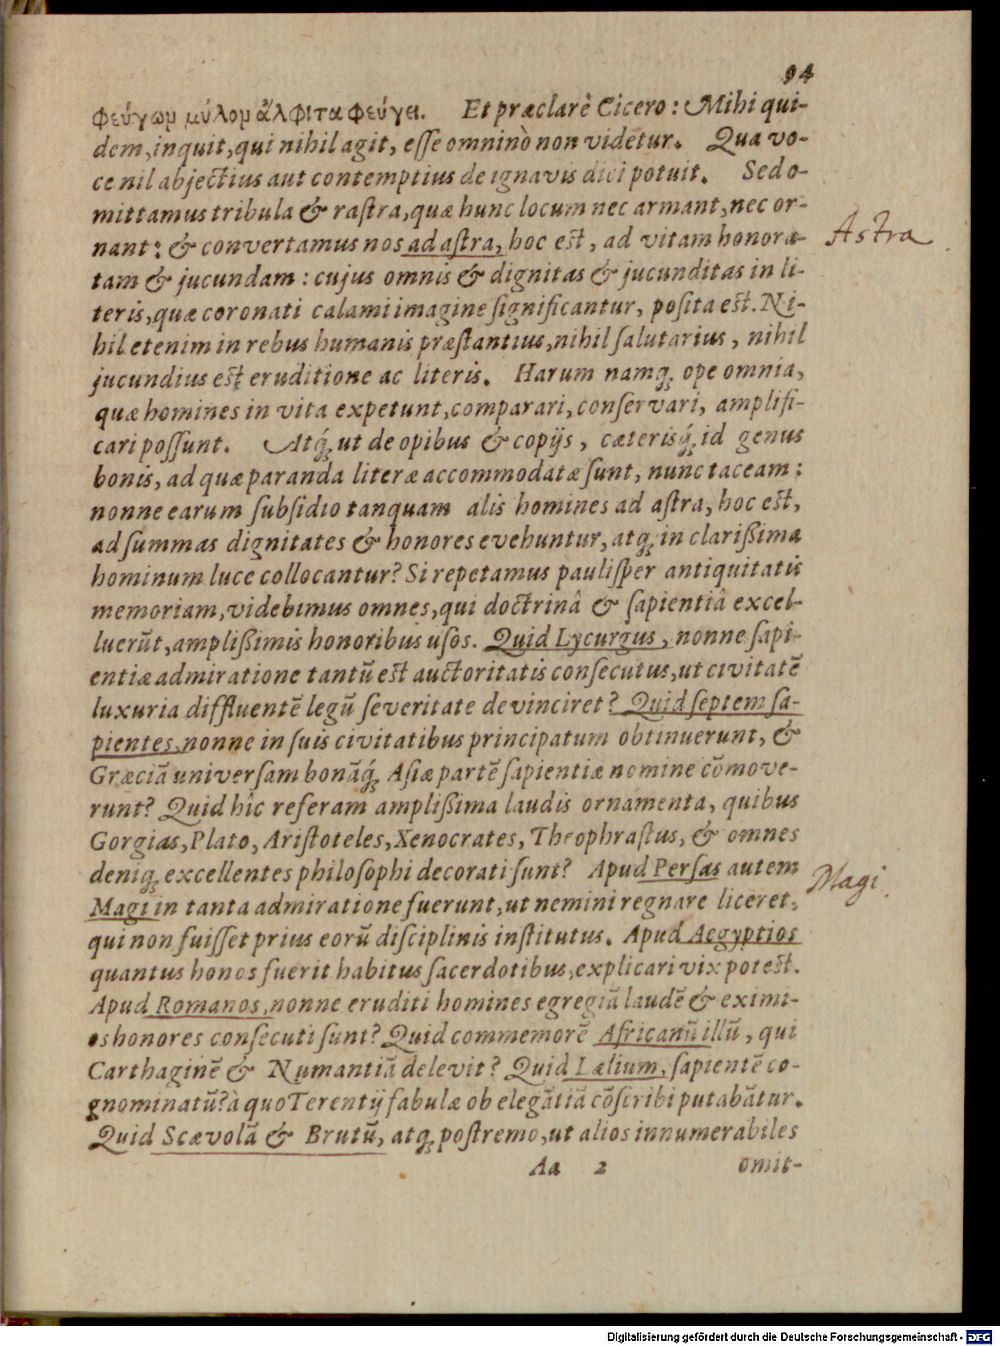 94
φεύγωμ μύλομ ἄλφιτα φεύγει. Et præclarè Cicero: Mihi qui-
dem, inquit, qui nihil agit, esse omninò non videtur. Qua vo-
ce nil abjectius aut contemptius de ignavis dici potuit. Sed o-
mittamus tribula & rastra, quæ hunc locum nec armant, nec or-
nant: & convertamus nos ad astra, hoc est, ad vitam honora-
Astra
tam & jucundam: cujus omnis & dignitas & jucunditas in li-
teris, quæ coronati calami imagine significantur, posita est. Ni-
hil etenim in rebus humanis præstantius, nihil salutarius, nihil
jucundius est eruditione ac literis. Harum namq; ope omnia,
quæ homines in vita expetunt, comparari, conservari, amplifi-
cari possunt. Atq; ut de opibus & copijs, cæterisq; id genus
bonis, ad quæ paranda literæ accommodatæ sunt, nunc taceam:
nonne earum subsidio tanquam alis homines ad astra, hoc est,
ad summas dignitates & honores evehuntur, atq; in clarißima
hominum luce collocantur? Si repetamus paulisper antiquitatis
memoriam, videbimus omnes, qui doctrinâ & sapientiâ excel-
luerūt, amplißimis honoribus usos. Quid Lycurgus, nonne sapi-
entiæ admiratione tantū est auctoritatis consecutus, ut civitatē
luxuria diffluentē legū severitate devinciret? Quid septem sa-
pientes, nonne in suis civitatibus principatum obtinuerunt, &
Græciā universam bonāq; Asiæ partē sapientiæ nomine cōmove-
runt? Quid hîc referam amplißima laudis ornamenta, quibus
Gorgias, Plato, Aristoteles, Xenocrates, Theophrastus, & omnes
deniq; excellentes philosophi decorati sunt? Apud Persas autem
Magi
Magi in tanta admiratione fuerunt, ut nemini regnare liceret,
qui non fuisset prius eorū disciplinis institutus. Apud Aegyptios
quantus honos fuerit habitus sacerdotibus, explicari vix potest.
Apud Romanos, nonne eruditi homines egregiā laudē & eximi-
os honores consecuti sunt? Quid commemorē Africanū illū, qui
Carthaginē & Numantiā delevit? Quid Lælium, sapientē co-
gnominatū? à quo Terentij fabulæ ob elegātiā cōscribi putabātur.
Quid Scævolā & Brutū, atq; postremo, ut alios innumerabiles
Aa 2 omit-
Digitalisierung gefördert durch die Deutsche Forschungsgemeinschaft - DFG